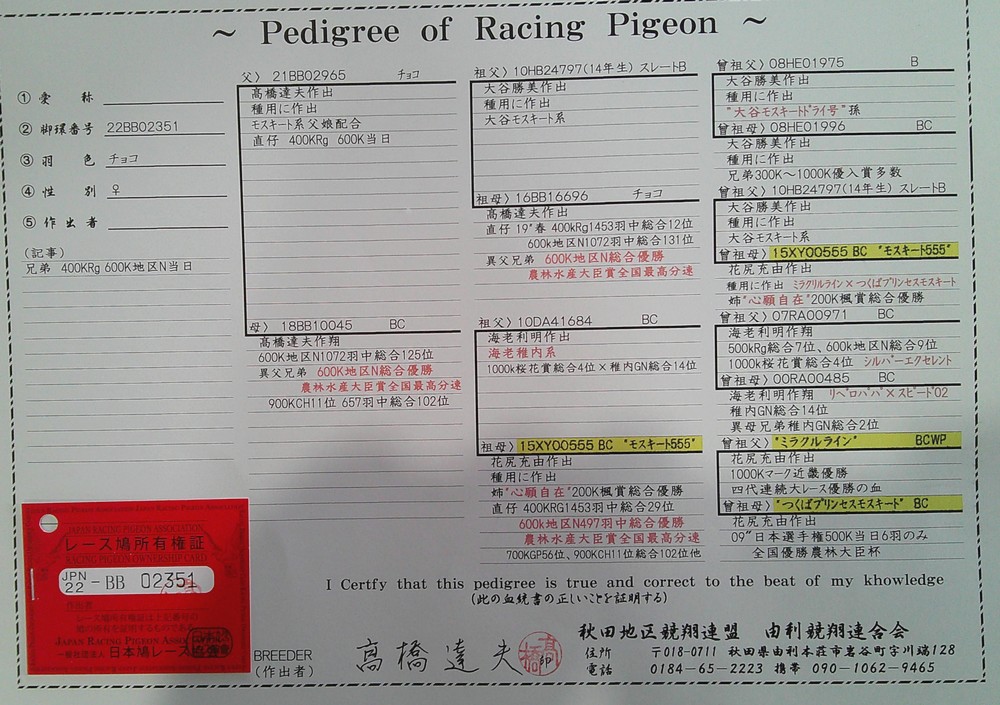 ~ Pedigree of Racing Pigeon ~
① 愛 称
② 脚環番号 22BB02351
③ 羽 色 チョコ
④ 性 別 ♀
⑤ 作 出 者
(記事)
兄弟 400KRg 600K地区N当日
父〉 21BB02965 チョコ
髙橋達夫作出
種用に作出
モスキート系父娘配合
直仔 400KRg 600K当日
母〉 18BB10045 BC
髙橋達夫作翔
600K地区N1072羽中総合125位
異父兄弟 600K地区N総合優勝
農林水産大臣賞全国最高分速
900KCH11位 657羽中総合102位
祖父〉10HB24797(14年生) スレートB
大谷勝美作出
種用に作出
大谷モスキート系
祖母〉16BB16696 チョコ
髙橋達夫作出
直仔 19"春 400kRg1453羽中総合12位
600k地区N1072羽中総合131位
異父兄弟 600K地区N総合優勝
農林水産大臣賞全国最高分速
祖父〉10DA41684 BC
海老利明作出
海老稚内系
1000k桜花賞総合4位×稚内GN総合14位
祖母〉15XY00555 BC "モスキート555"
花尻充由作出
種用に作出
姉"心願自在"200K楓賞総合優勝
直仔 400KRG1453羽中総合29位
600k地区N497羽中総合優勝
農林水産大臣賞全国最高分速
700KGP56位、900KCH11位総合102位他
曾祖父〉08HE01975 B
大谷勝美作出
種用に作出
"大谷モスキートドライ号"孫
曾祖母〉08HE01996 BC
大谷勝美作出
種用に作出
兄弟300K~1000K優入賞多数
曾祖父〉10HB24797(14年生) スレートB
大谷勝美作出
種用に作出
大谷モスキート系
曾祖母〉15XY00555 BC "モスキート555"
花尻充由作出
種用に作出 ミラクリルライン×つくばプリンセスモスキート
姉"心願自在"200K楓賞総合優勝
曾祖父〉07RA00971 BC
海老利明作出
500kRg総合7位、600k地区N総合9位
1000k桜花賞総合4位 シルバーエクセレント
曾祖母〉00RA00485 BC
海老利明作翔 リベロパパ×スピード02
稚内GN総合14位
異母兄弟稚内GN総合2位
曾祖父〉"ミラクルライン" BCWP
花尻充由作出
1000Kマーク近畿優勝
四代連続大レース優勝の血
曾祖母〉"つくばプリンセスモスキード" BC
花尻充由作出
09"日本選手権500K当日6羽のみ
全国優勝農林大臣杯
JAPAN RACING PIGEON ASSOCIATION
レース鳩所有権証
RACING PIGEON OWNERSHIP CARD
JPN 22 - BB 02351
作出者
レース鳩所有権証は上記番号の
鳩の所有を証明するものである
JAPAN RACING PIGEON ASSOC
一般社団法人 日本鳩レース
I Certfy that this pedigree is true and correct to the beat of my khowledge
(此の血統書の正しいことを証明する)
BREEDER
(作出者)
髙橋達夫 印
秋田地区競翔連盟 由利競翔連合会
住所 〒018-0711 秋田県由利本荘市岩谷町字川端128
電話 0184-65-2223 携帯 090-1062-9465